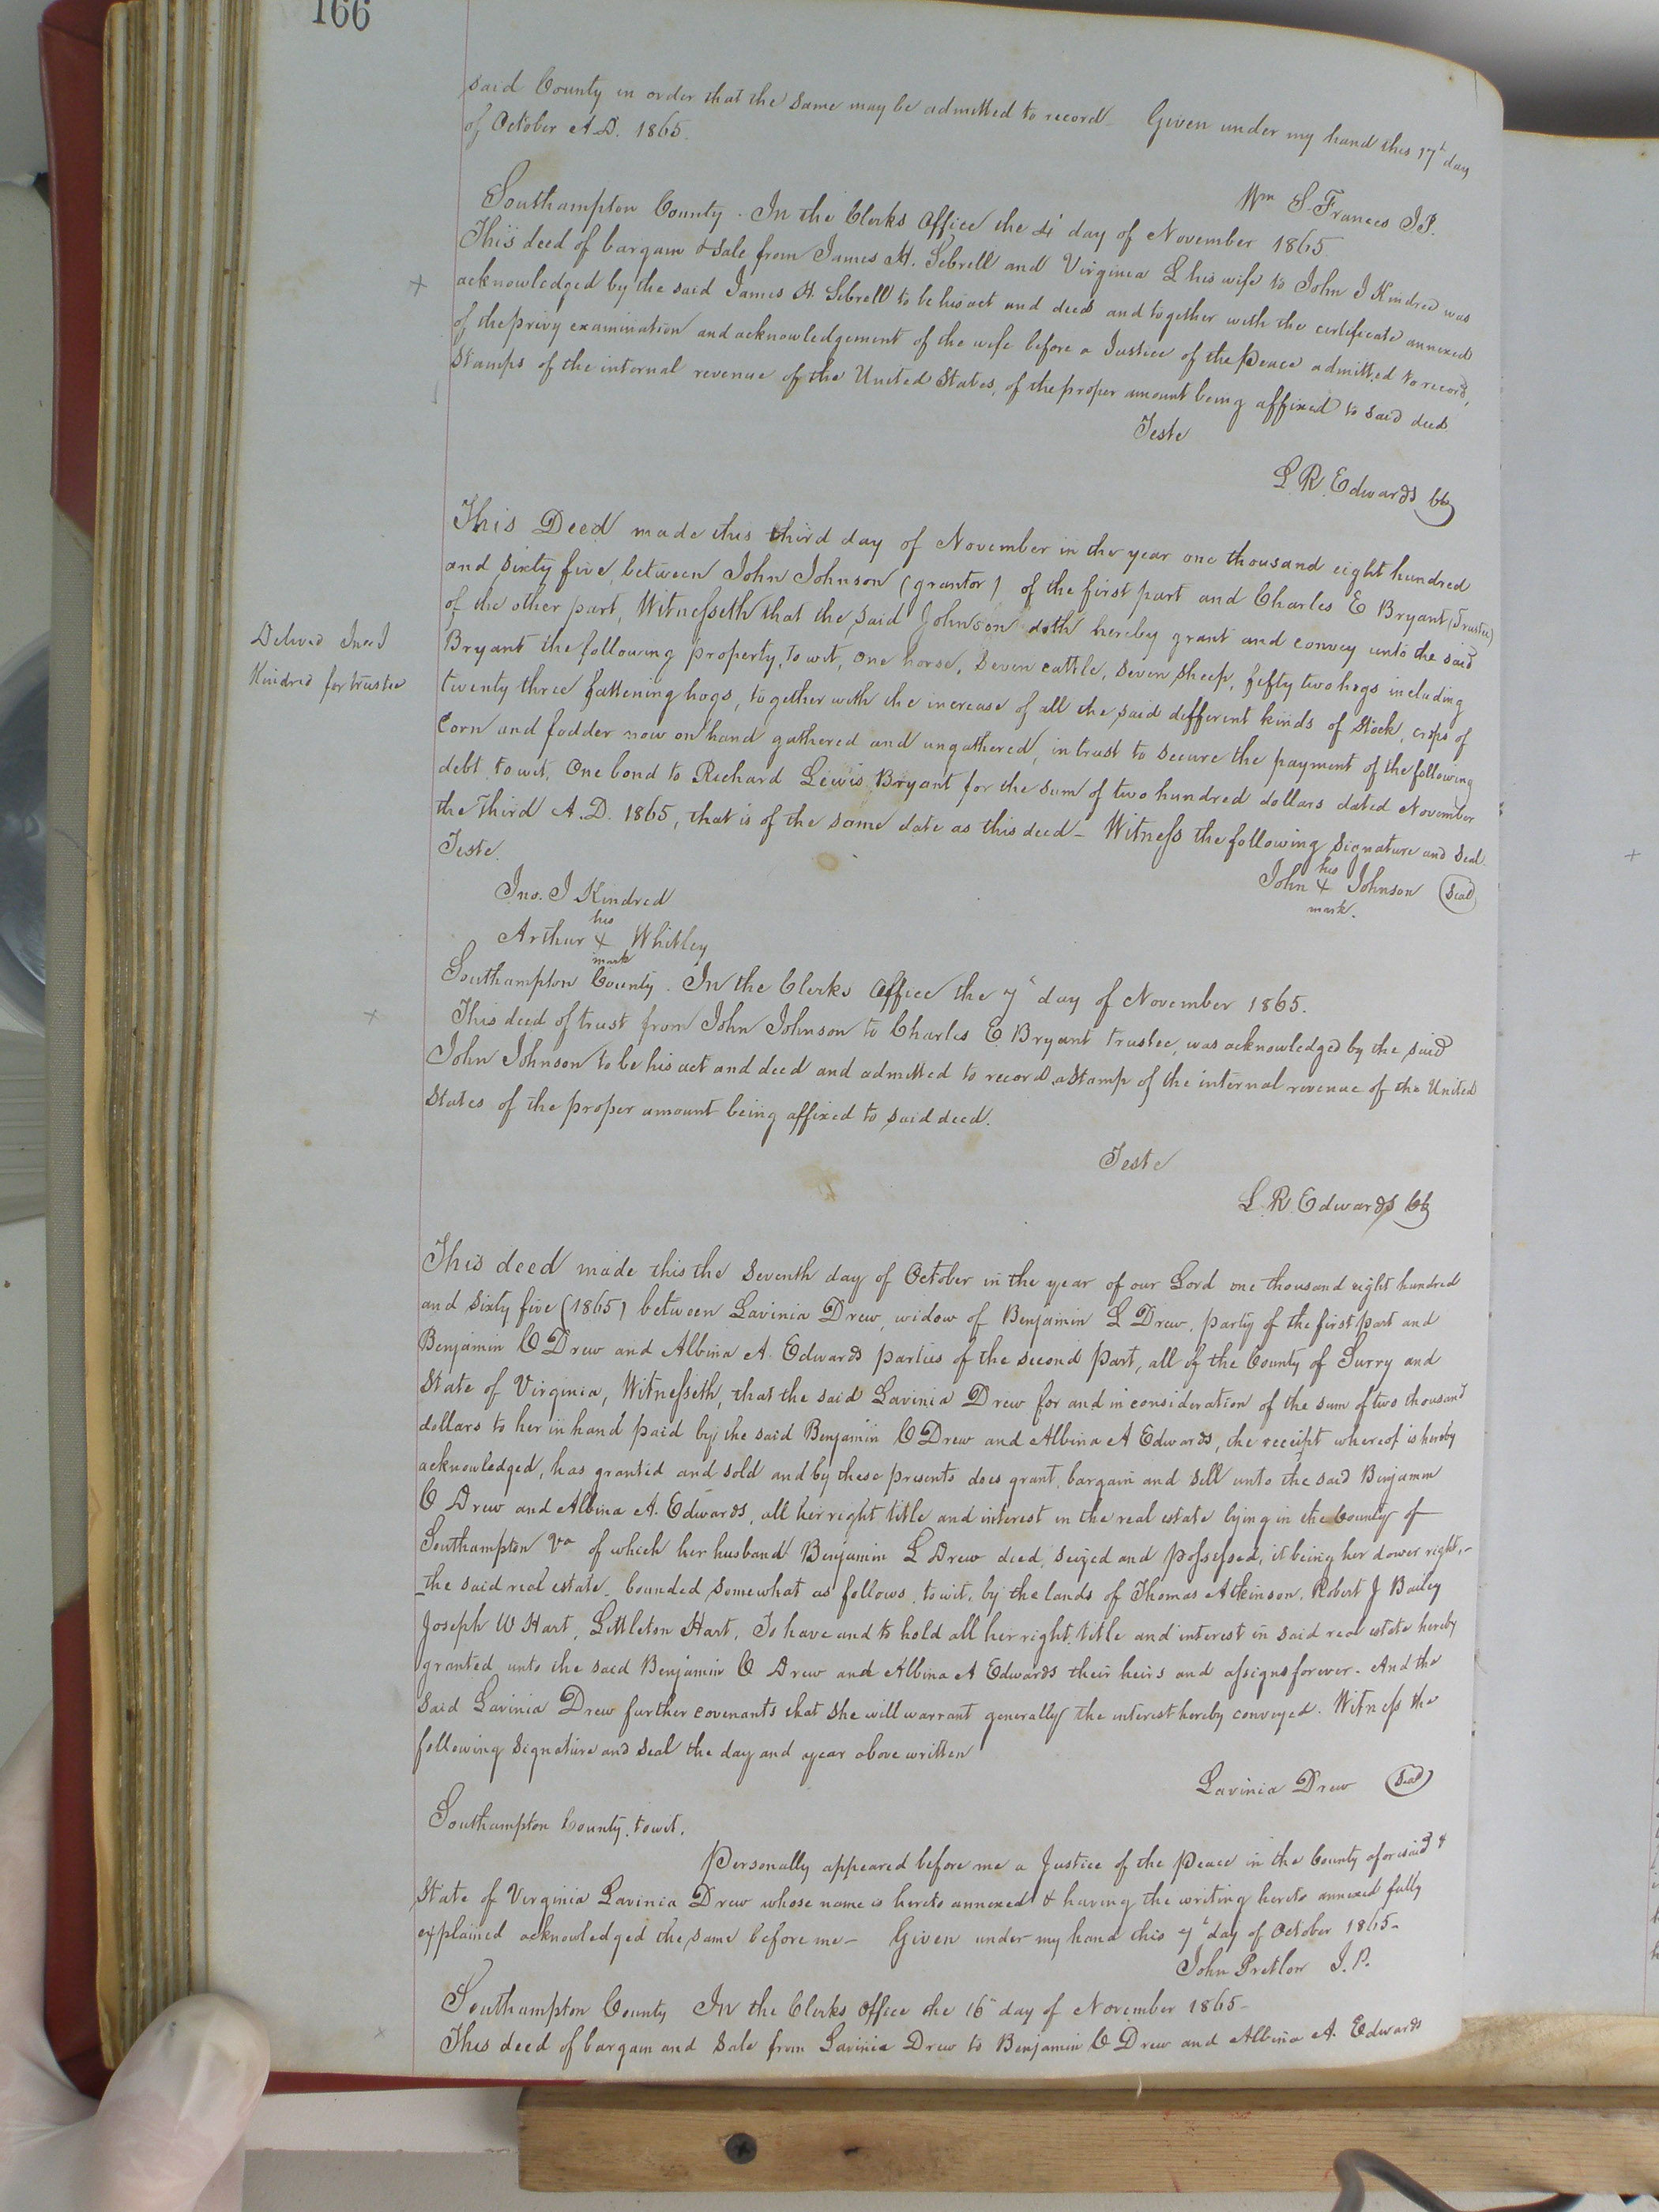 166
said County in order that the same may be admitted to record Given under my hand this 17th day
of October A.D. 1865.
Wm S. Frances J.P.
Southampton County. In the Clerks Office the 4' day of November 1865
This deed of bargain & sale from James H. Sebrell and Virginia L his wife to John J Kindred was
acknowledged by the said James H. Sebrell to be his act and deed and together with the certificate annexed
of the privy examination and acknowledgement of the wife before a Justice of the Peace admitted to record,
Stamps of the internal revenue of the United States, of the proper amount being affixed to said deed
Teste
L. R. Edwards Clk
This Deed made this third day of November in the year one thousand eight hundred
and sixty five, between John Johnson (grantor) of the first part and Charles E Bryant (Trustee)
of the other part, Witnesseth that the said Johnson doth hereby grant and convey unto the said
Bryant the following property, to wit, one horse, seven cattle, seven sheep, fifty two hogs including
twenty three fattening hogs, together with the increase of all the said different kinds of stock, crops of
Corn and fodder now on hand gathered and ungathered, in trust to secure the payment of the following
debt to wit, One bond to Richard Lewis Bryant for the sum of two hundred dollars dated November
the Third A.D. 1865, that is of the same date as this deed – Witness the following signature and seal.
Delived Jno J
Kindred for trustee
Teste.
his
John + Johnson (Seal)
mark.
Jno. J Kindred
his
Arthur + Whitley
mark
Southampton County. In the Clerks Office the 7th day of November 1865.
This deed of trust from John Johnson to Charles E. Bryant trustee, was acknowledged by the said
John Johnson to be his act and deed and admitted to record a Stamp of the internal revenue of the United
States of the proper amount being affixed to said deed.
Teste
L. R. Edwards Clk
This deed made this the seventh day of October in the year of our Lord one thousand eight hundred
and sixty five (1865) between Lavinia Drew, widow of Benjamin L Drew, party of the first part and
Benjamin C Drew and Albina A. Edwards parties of the second part, all of the County of Surry and
State of Virginia, Witnesseth, that the said Lavinia Drew for and in consideration of the sum of two thousand
dollars to her in hand paid by the said Benjamin C Drew and Albina A Edwards, the receipt whereof is hereby
acknowledged, has granted and sold and by these presents does grant, bargain and sell unto the said Benjamin
C Drew and Albina A. Edwards, all her right title and interest in the real estate lying in the County of
Southampton Va of which her husband Benjamin L Drew died, seized and possessed, it being her dower right, -
the said real estate bounded somewhat as follows, to wit, by the lands of Thomas Atkinson, Robert J Bailey
Joseph W Hart, Littleton Hart, To have and to hold all her right title and interest in said real estate hereby
granted unto the said Benjamin C Drew and Albina A Edwards their heirs and assigns forever. And the
said Lavinia Drew further covenants that she will warrant generally the interest hereby conveyed. Witness the
following signature and seal the day and year above written
Lavinia Drew (Seal)
Southampton County, to wit.
Personally appeared before me a Justice of the Peace in the County aforesaid &
State of Virginia Lavinia Drew whose name is hereto annexed & having the writing hereto annexed fully
explained acknowledged the same before me – Given under my hand this 7th day of October 1865 –
John Pretlow J.P.
Southampton County In the Clerks Office the 16th day of November 1865 –
This deed of bargain and Sale from Lavinia Drew to Benjamin C Drew and Albina A. Edwards